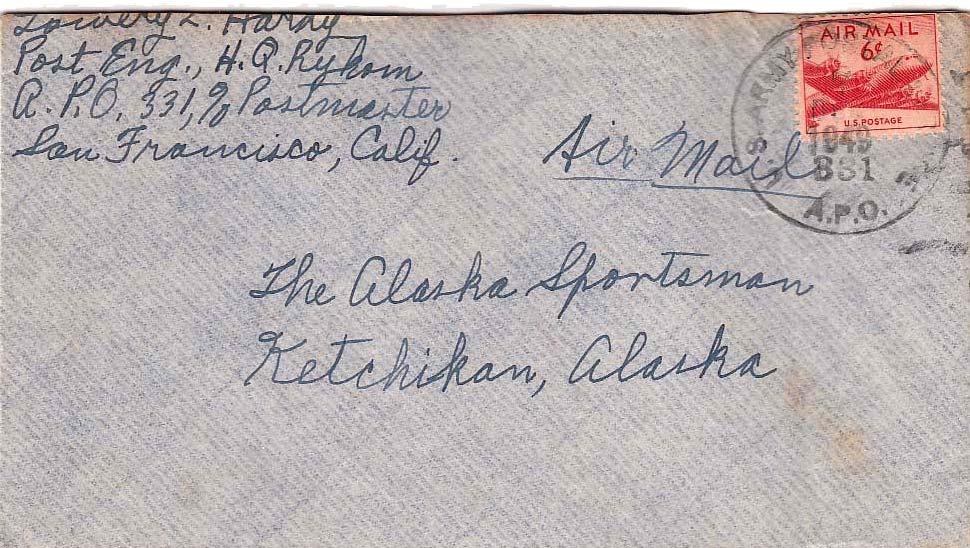 Lowery L. Hardy
Post Eng., H.Q. Rykom
A.P.O. 331, % Postmaster
San Francisco, Calif.
Air Mail
AIR MAIL
6¢
U.S. POSTAGE
U.S. ARMY POSTAL
1949
331
A.P.O.
The Alaska Sportsman
Ketchikan, Alaska